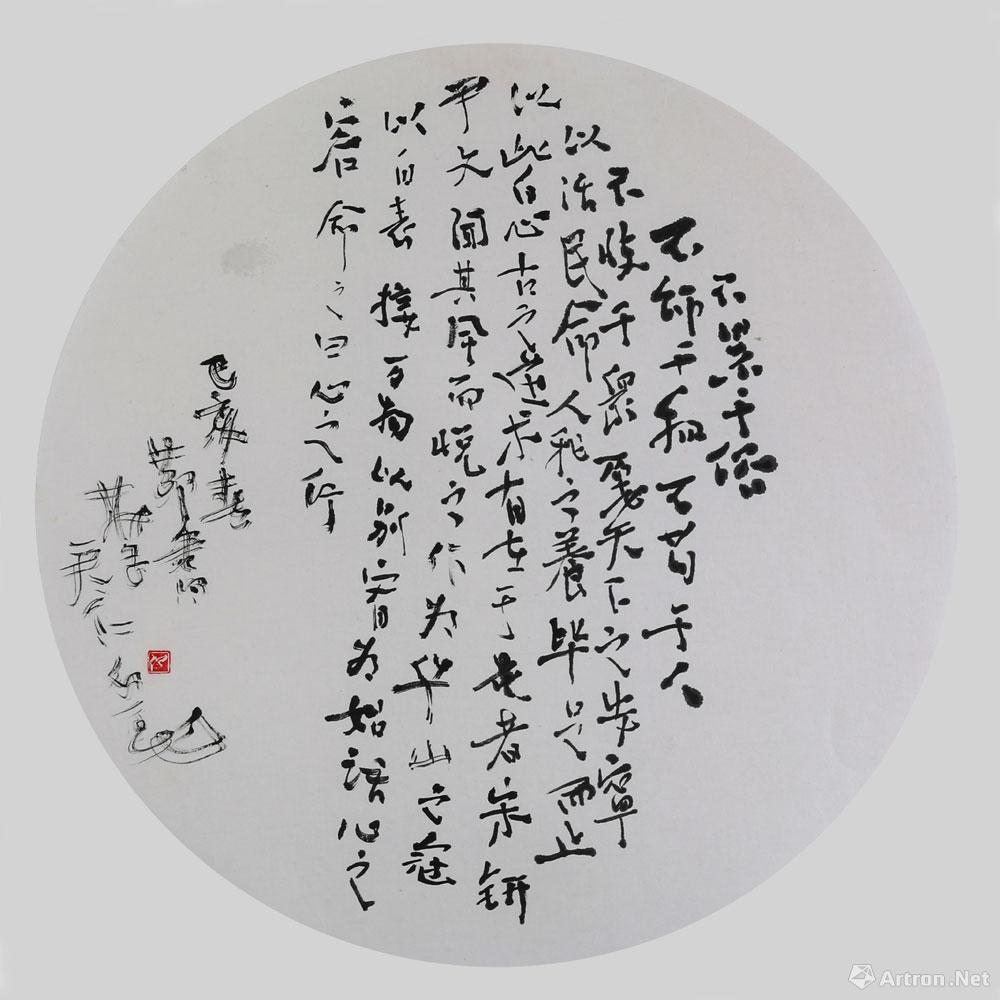 不累于俗
不飾于物不苟于人
不忮于眾愿天下之安寧
以活民命人我之養畢足而止
以此白心古之道術有在于是者宋鈃
尹文聞其風而悅之作為華山之冠
以自表接万物以別宥為始語心之
容命之曰心之行
己亥春
莊子
Artron.Net